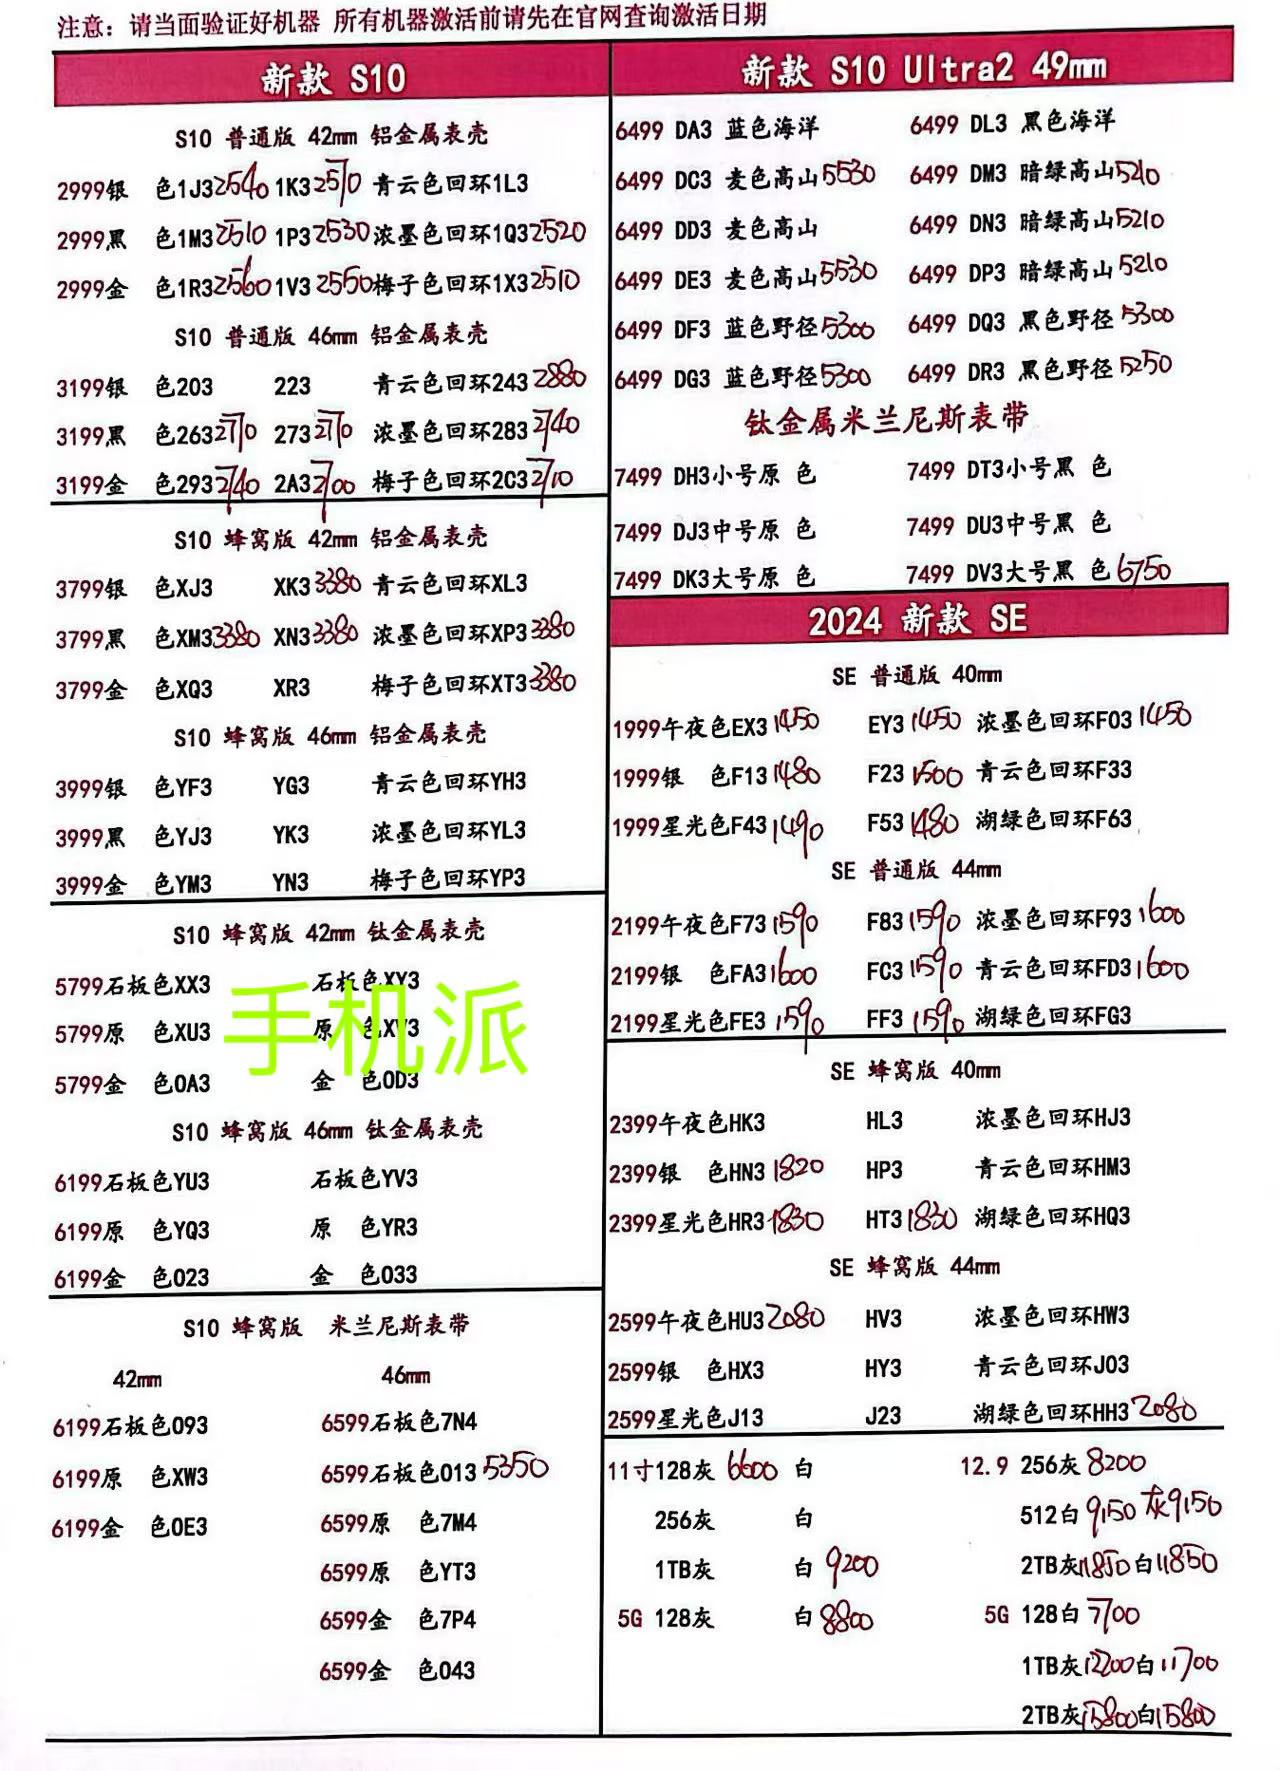 注意：请当面验证好机器 所有机器激活前请先在官网查询激活日期
新款 S10
S10 普通版 42mm 铝金属表壳
2999银 色1J3 2540 1K3 2570 青云色回环1L3
2999黑 色1M3 2510 1P3 2530 浓墨色回环1Q3 2520
2999金 色1R3 2560 1V3 2550 梅子色回环1X3 2510
S10 普通版 46mm 铝金属表壳
3199银 色203 223 青云色回环243 2880
3199黑 色263 2710 273 2710 浓墨色回环283 2740
3199金 色293 2740 2A3 2700 梅子色回环2C3 2710
S10 蜂窝版 42mm 铝金属表壳
3799银 色XJ3 XK3 3380 青云色回环XL3
3799黑 色XM3 3380 XN3 3380 浓墨色回环XP3 3380
3799金 色XQ3 XR3 梅子色回环XT3 3380
S10 蜂窝版 46mm 铝金属表壳
3999银 色YF3 YG3 青云色回环YH3
3999黑 色YJ3 YK3 浓墨色回环YL3
3999金 色YM3 YN3 梅子色回环YP3
S10 蜂窝版 42mm 钛金属表壳
5799石板色XX3 石板色XY3
5799原 色XU3 原 色XV3
手机派
5799金 色0A3 金 色0D3
S10 蜂窝版 46mm 钛金属表壳
6199石板色YU3 石板色YV3
6199原 色YQ3 原 色YR3
6199金 色023 金 色033
S10 蜂窝版 米兰尼斯表带
42mm 46mm
6199石板色093 6599石板色7N4
6199原 色XW3 6599石板色013 5350
6199金 色0E3 6599原 色7M4
6599原 色YT3
6599金 色7P4
6599金 色043
新款 S10 Ultra2 49mm
6499 DA3 蓝色海洋 6499 DL3 黑色海洋
6499 DC3 麦色高山 5530 6499 DM3 暗绿高山 5210
6499 DD3 麦色高山 6499 DN3 暗绿高山 5210
6499 DE3 麦色高山 5530 6499 DP3 暗绿高山 5210
6499 DF3 蓝色野径 5300 6499 DQ3 黑色野径 5300
6499 DG3 蓝色野径 5300 6499 DR3 黑色野径 5250
钛金属米兰尼斯表带
7499 DH3小号原 色 7499 DT3小号黑 色
7499 DJ3中号原 色 7499 DU3中号黑 色
7499 DK3大号原 色 7499 DV3大号黑 色 6750
2024 新款 SE
SE 普通版 40mm
1999午夜色EX3 1450 EY3 1450 浓墨色回环F03 1450
1999银 色F13 1480 F23 1500 青云色回环F33
1999星光色F43 1490 F53 1480 湖绿色回环F63
SE 普通版 44mm
2199午夜色F73 1590 F83 1590 浓墨色回环F93 1600
2199银 色FA3 1600 FC3 1590 青云色回环FD3 1600
2199星光色FE3 1590 FF3 1590 湖绿色回环FG3
SE 蜂窝版 40mm
2399午夜色HK3 HL3 浓墨色回环HJ3
2399银 色HN3 1820 HP3 青云色回环HM3
2399星光色HR3 1830 HT3 1830 湖绿色回环HQ3
SE 蜂窝版 44mm
2599午夜色HU3 2080 HV3 浓墨色回环HW3
2599银 色HX3 HY3 青云色回环J03
2599星光色J13 J23 湖绿色回环HH3 2080
11寸128灰 6600 白 12.9 256灰 8200
256灰 白 512白 9150 灰9150
1TB灰 白 9200 2TB灰 11850 白 11850
5G 128灰 白 8800 5G 128白 7700
1TB灰 12200 白 11700
2TB灰 15800 白 15800